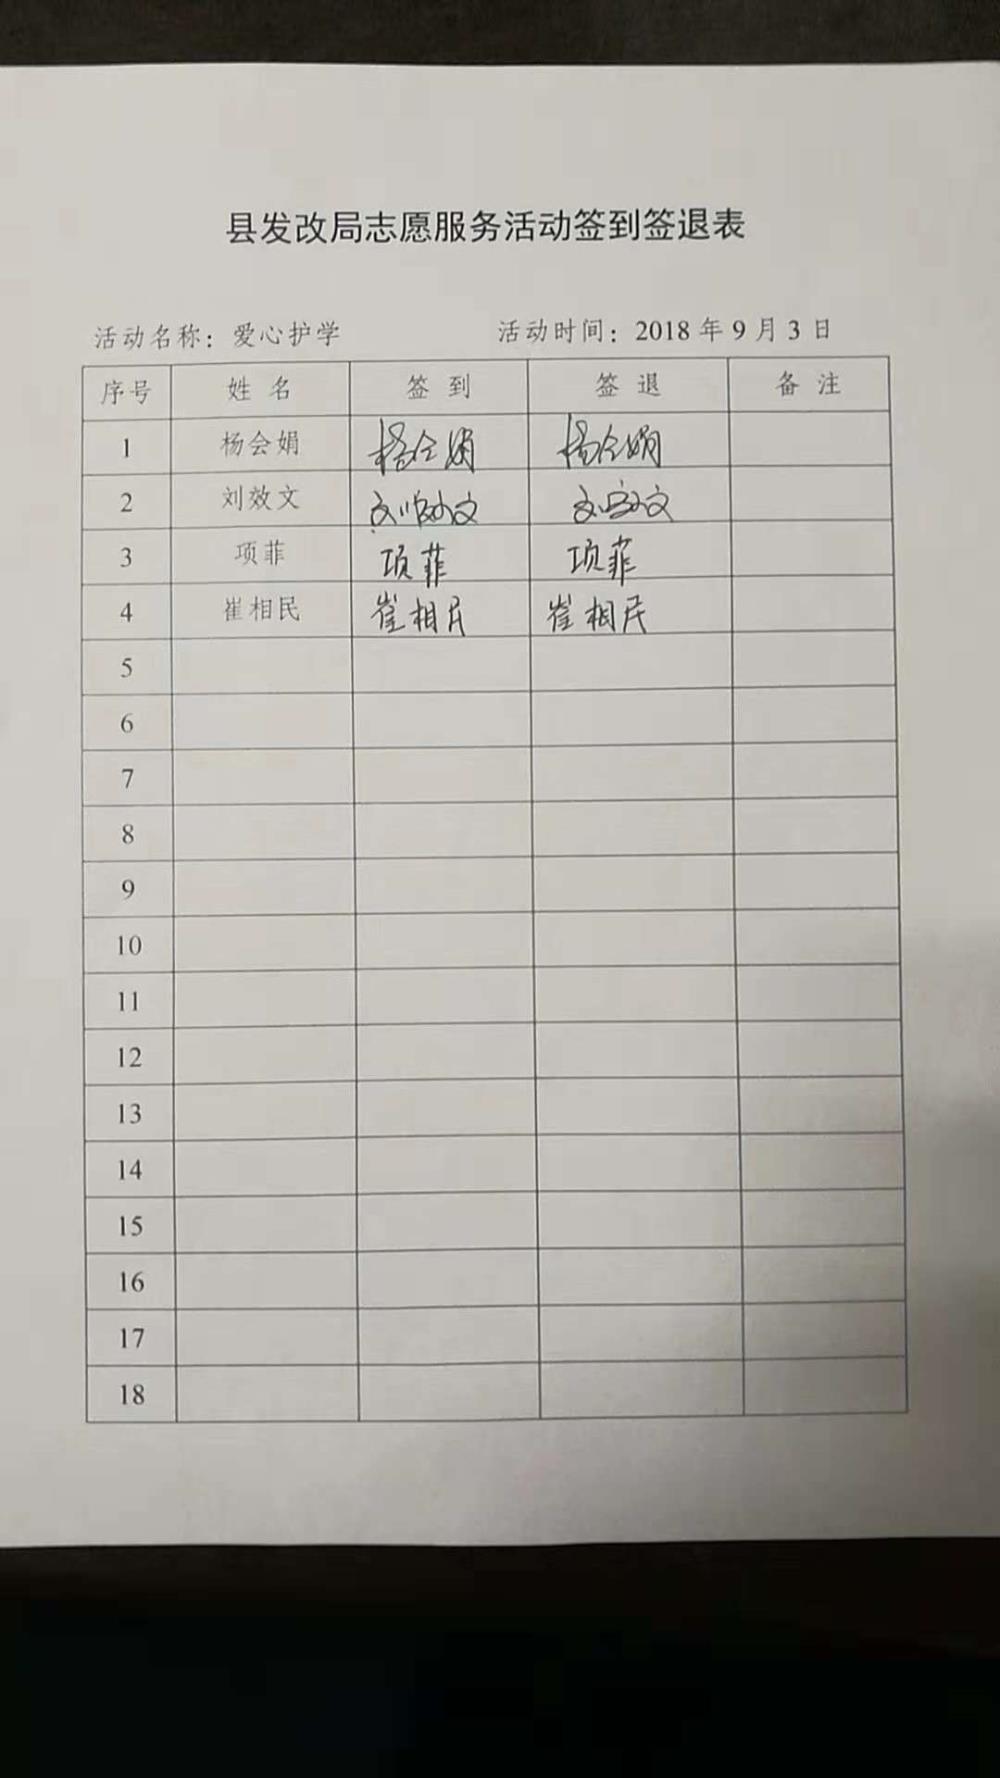 县发改局志愿服务活动签到签退表
活动名称：爱心护学 活动时间：2018年9月3日
序号 姓名 签到 签退 备注
1 杨会娟 杨会娟 杨会娟
2 刘效文 刘效文 刘效文
3 项菲 项菲 项菲
4 崔相民 崔相民 崔相民
5
6
7
8
9
10
11
12
13
14
15
16
17
18